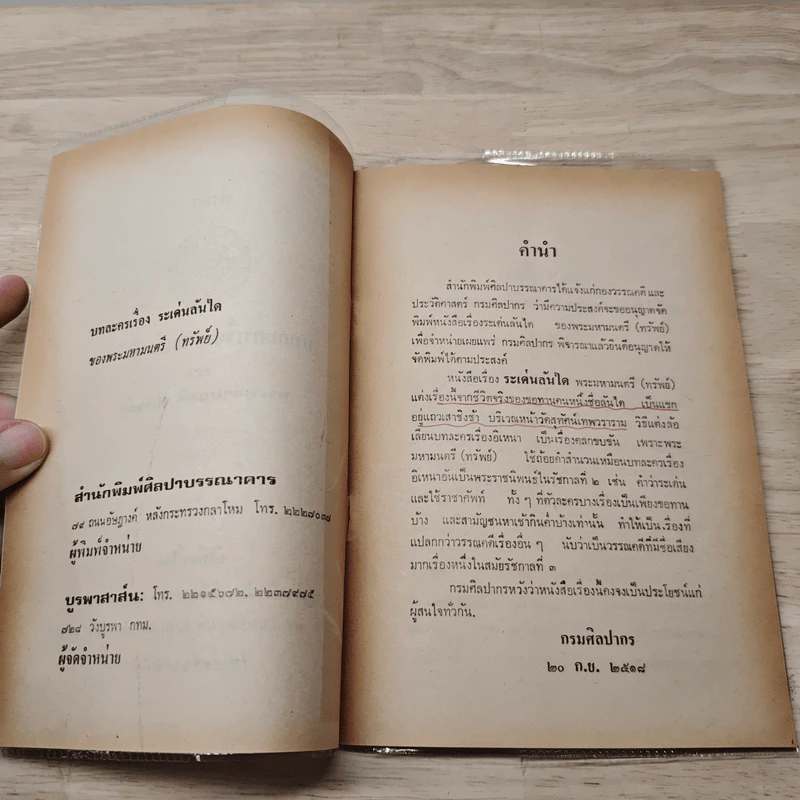 บทละครเรื่อง ระเด่นลันได
ของพระมหามนตรี (ทรัพย์)
สำนักพิมพ์ศิลปาบรรณาคาร
๗๔ ถนนอัษฎางค์ หลังกระทรวงกลาโหม โทร. ๒๒๒๗๐๓๘
ผู้พิมพ์จำหน่าย
บูรพาสาส์น: โทร. ๒๒๑๕๖๗๒, ๒๒๓๗๙๗๕
๗๒๘ วังบูรพา กทม.
ผู้จัดจำหน่าย
คำนำ
สำนักพิมพ์ศิลปาบรรณาคารได้แจ้งแก่กองวรรณคดีและ
ประวัติศาสตร์ กรมศิลปากร ว่ามีความประสงค์จะขออนุญาตจัด
พิมพ์หนังสือเรื่องระเด่นลันได ของพระมหามนตรี (ทรัพย์)
เพื่อจำหน่ายเผยแพร่ กรมศิลปากร พิจารณาแล้วยินดีอนุญาตให้
จัดพิมพ์ได้ตามประสงค์
หนังสือเรื่อง ระเด่นลันได พระมหามนตรี (ทรัพย์)
แต่งเรื่องนี้จากชีวิตจริงของขอทานคนหนึ่งชื่อลันได เป็นแขก
อยู่แถวเสาชิงช้า บริเวณหน้าวัดสุทัศน์เทพวราราม วิธีแต่งล้อ
เลียนบทละครเรื่องอิเหนา เป็นเรื่องตลกขบขัน เพราะพระ
มหามนตรี (ทรัพย์) ใช้ถ้อยคำสำนวนเหมือนบทละครเรื่อง
อิเหนาอันเป็นพระราชนิพนธ์ในรัชกาลที่ ๒ เช่น คำว่าระเด่น
และใช้ราชาศัพท์ ทั้ง ๆ ที่ตัวละครบางเรื่องเป็นเพียงขอทาน
บ้าง และสามัญชนหาเช้ากินค่ำบ้างเท่านั้น ทำให้เป็นเรื่องที่
แปลกกว่าวรรณคดีเรื่องอื่น ๆ นับว่าเป็นวรรณคดีที่มีชื่อเสียง
มากเรื่องหนึ่งในสมัยรัชกาลที่ ๓
กรมศิลปากรหวังว่าหนังสือเรื่องนี้คงจะเป็นประโยชน์แก่
ผู้สนใจทั่วกัน.
กรมศิลปากร
๒๐ ก.ย. ๒๕๑๘